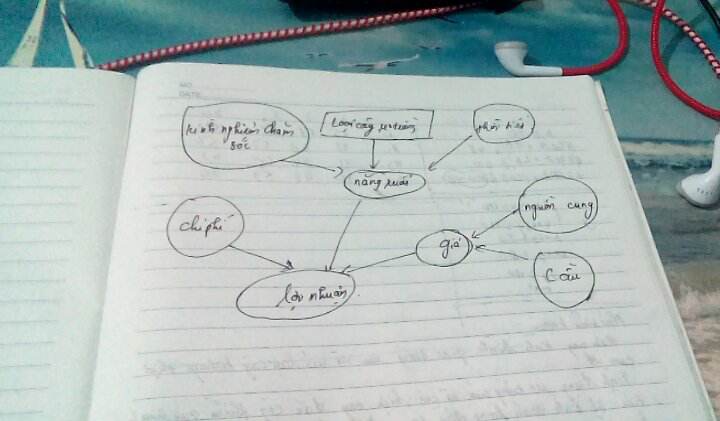 kinh nghiệm chăm
sóc
Loại cây trồng
phân bón
năng suất
chi phí
nguồn cung
giá
cầu
lợi nhuận